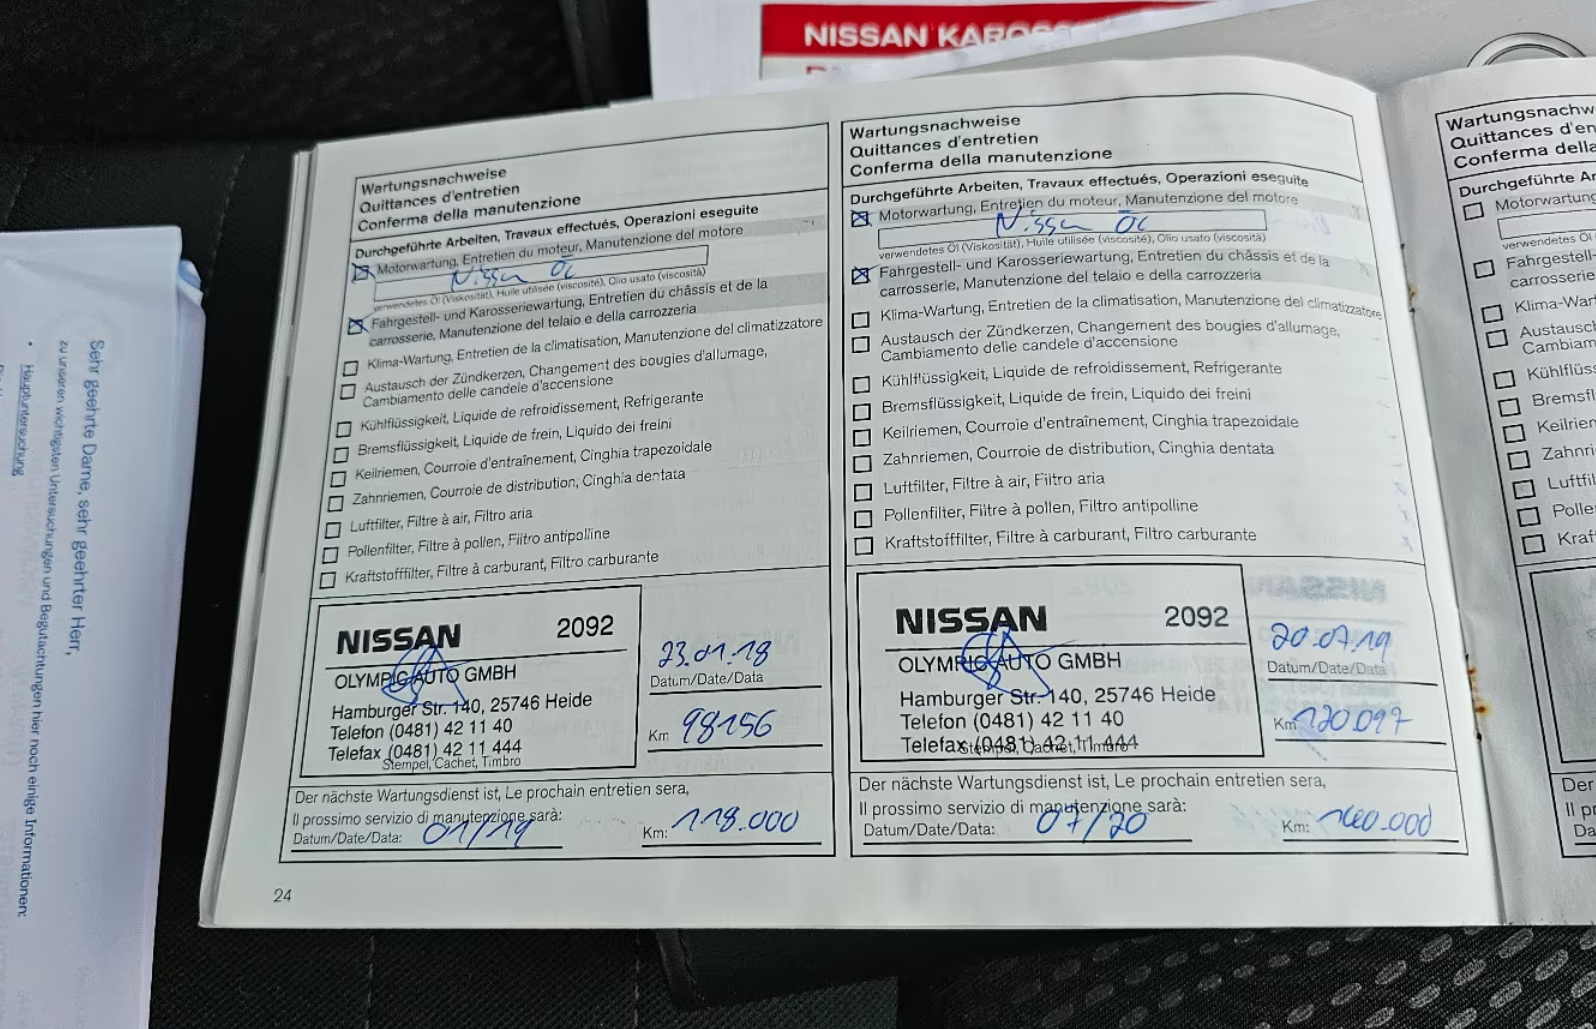 NISSAN KAROSS
Wartungsnachweise
Quittances d'entretien
Conferma della manutenzione
Durchgeführte Arbeiten, Travaux effectués, Operazioni eseguite
Motorwartung, Entretien du moteur, Manutenzione del motore
Nissan Öl
verwendetes Öl (Viskosität), Huile utilisée (viscosité), Olio usato (viscosità)
Fahrgestell- und Karosseriewartung, Entretien du châssis et de la
carrosserie, Manutenzione del telaio e della carrozzeria
Klima-Wartung, Entretien de la climatisation, Manutenzione del climatizzatore
Austausch der Zündkerzen, Changement des bougies d'allumage,
Cambiamento delle candele d'accensione
Kühlflüssigkeit, Liquide de refroidissement, Refrigerante
Bremsflüssigkeit, Liquide de frein, Liquido dei freini
Keilriemen, Courroie d'entraînement, Cinghia trapezoidale
Zahnriemen, Courroie de distribution, Cinghia dentata
Luftfilter, Filtre à air, Filtro aria
Pollenfilter, Filtre à pollen, Filtro antipolline
Kraftstofffilter, Filtre à carburant, Filtro carburante
NISSAN 2092
OLYMPIC AUTO GMBH
Hamburger Str. 140, 25746 Heide
Telefon (0481) 42 11 40
Telefax (0481) 42 11 444
Stempel, Cachet, Timbro
23.01.18
Datum/Date/Data
Km 98156
Der nächste Wartungsdienst ist, Le prochain entretien sera,
Il prossimo servizio di manutenzione sarà:
Datum/Date/Data: 01/19 Km: 118.000
24
Wartungsnachweise
Quittances d'entretien
Conferma della manutenzione
Durchgeführte Arbeiten, Travaux effectués, Operazioni eseguite
Motorwartung, Entretien du moteur, Manutenzione del motore
Nissan Öl
verwendetes Öl (Viskosität), Huile utilisée (viscosité), Olio usato (viscosità)
Fahrgestell- und Karosseriewartung, Entretien du châssis et de la
carrosserie, Manutenzione del telaio e della carrozzeria
Klima-Wartung, Entretien de la climatisation, Manutenzione del climatizzatore
Austausch der Zündkerzen, Changement des bougies d'allumage,
Cambiamento delle candele d'accensione
Kühlflüssigkeit, Liquide de refroidissement, Refrigerante
Bremsflüssigkeit, Liquide de frein, Liquido dei freini
Keilriemen, Courroie d'entraînement, Cinghia trapezoidale
Zahnriemen, Courroie de distribution, Cinghia dentata
Luftfilter, Filtre à air, Filtro aria
Pollenfilter, Filtre à pollen, Filtro antipolline
Kraftstofffilter, Filtre à carburant, Filtro carburante
NISSAN 2092
OLYMPIC AUTO GMBH
Hamburger Str. 140, 25746 Heide
Telefon (0481) 42 11 40
Telefax (0481) 42 11 444
Stempel, Cachet, Timbro
20.07.19
Datum/Date/Data
Km 120.097
Der nächste Wartungsdienst ist, Le prochain entretien sera,
Il prossimo servizio di manutenzione sarà:
Datum/Date/Data: 07/20 Km: 140.000
Wartungsnachw
Quittances d'en
Conferma della
Durchgeführte Ar
Motorwartung
verwendetes Öl
Fahrgestell-
carrosserie
Klima-War
Austausch
Cambiam
Kühlflüss
Bremsfl
Keilrien
Zahnri
Luftfil
Polle
Kraf
Der
Il p
Da
Sehr geehrte Dame, sehr geehrter Herr,
zu unseren wichtigsten Untersuchungen und Begutachtungen hier noch einige Informationen:
• Hauptuntersuchung